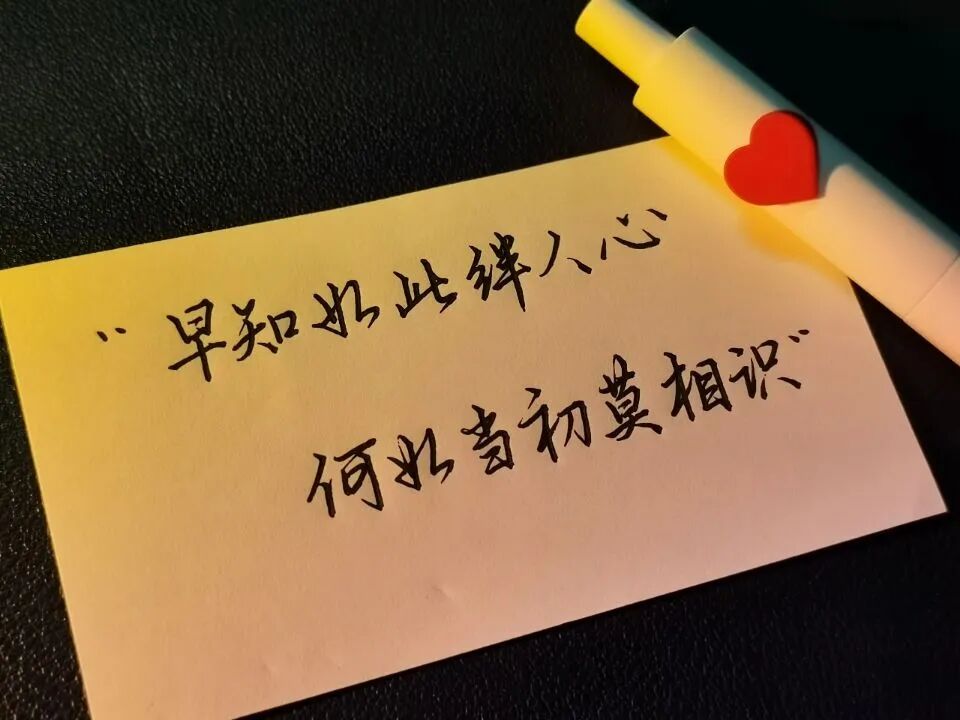 "早知如此绊人心
何如当初莫相识"